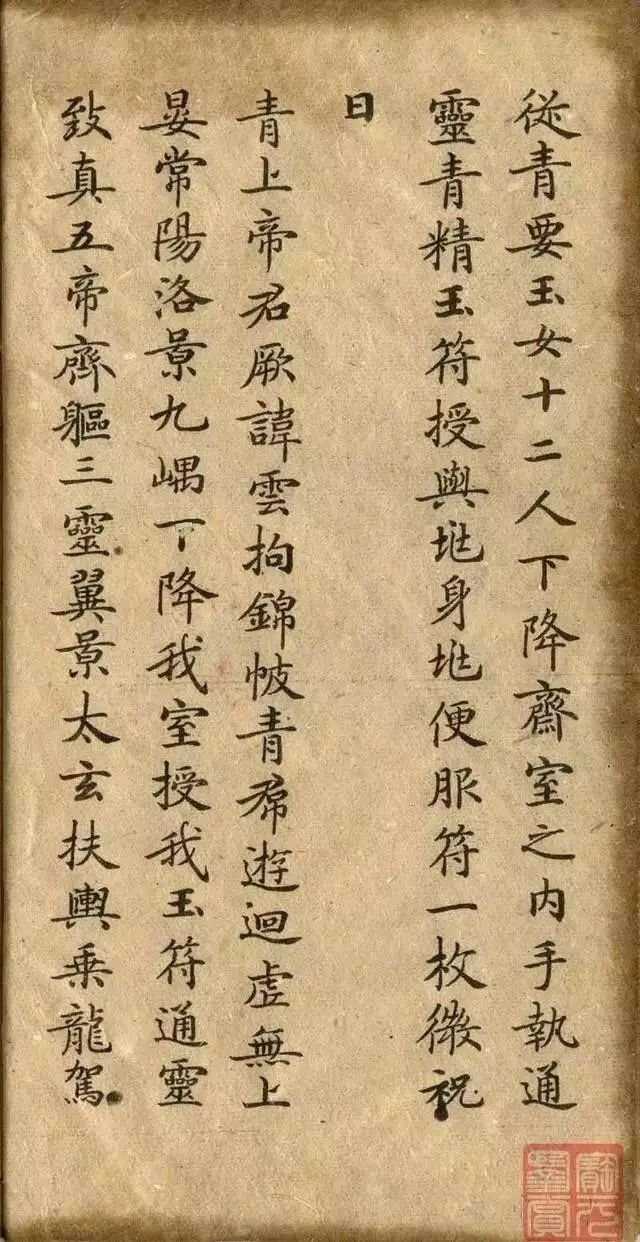 從青要玉女十二人下降齋室之内手執通
靈青精玉符授與地身地便服符一枚微祝
曰
青上帝君厥諱雲拘錦帔青帬遊迴虛無上
晏常陽洛景九嵎下降我室授我玉符通靈
致真五帝齊軀三靈翼景太玄扶輿乗龍駕